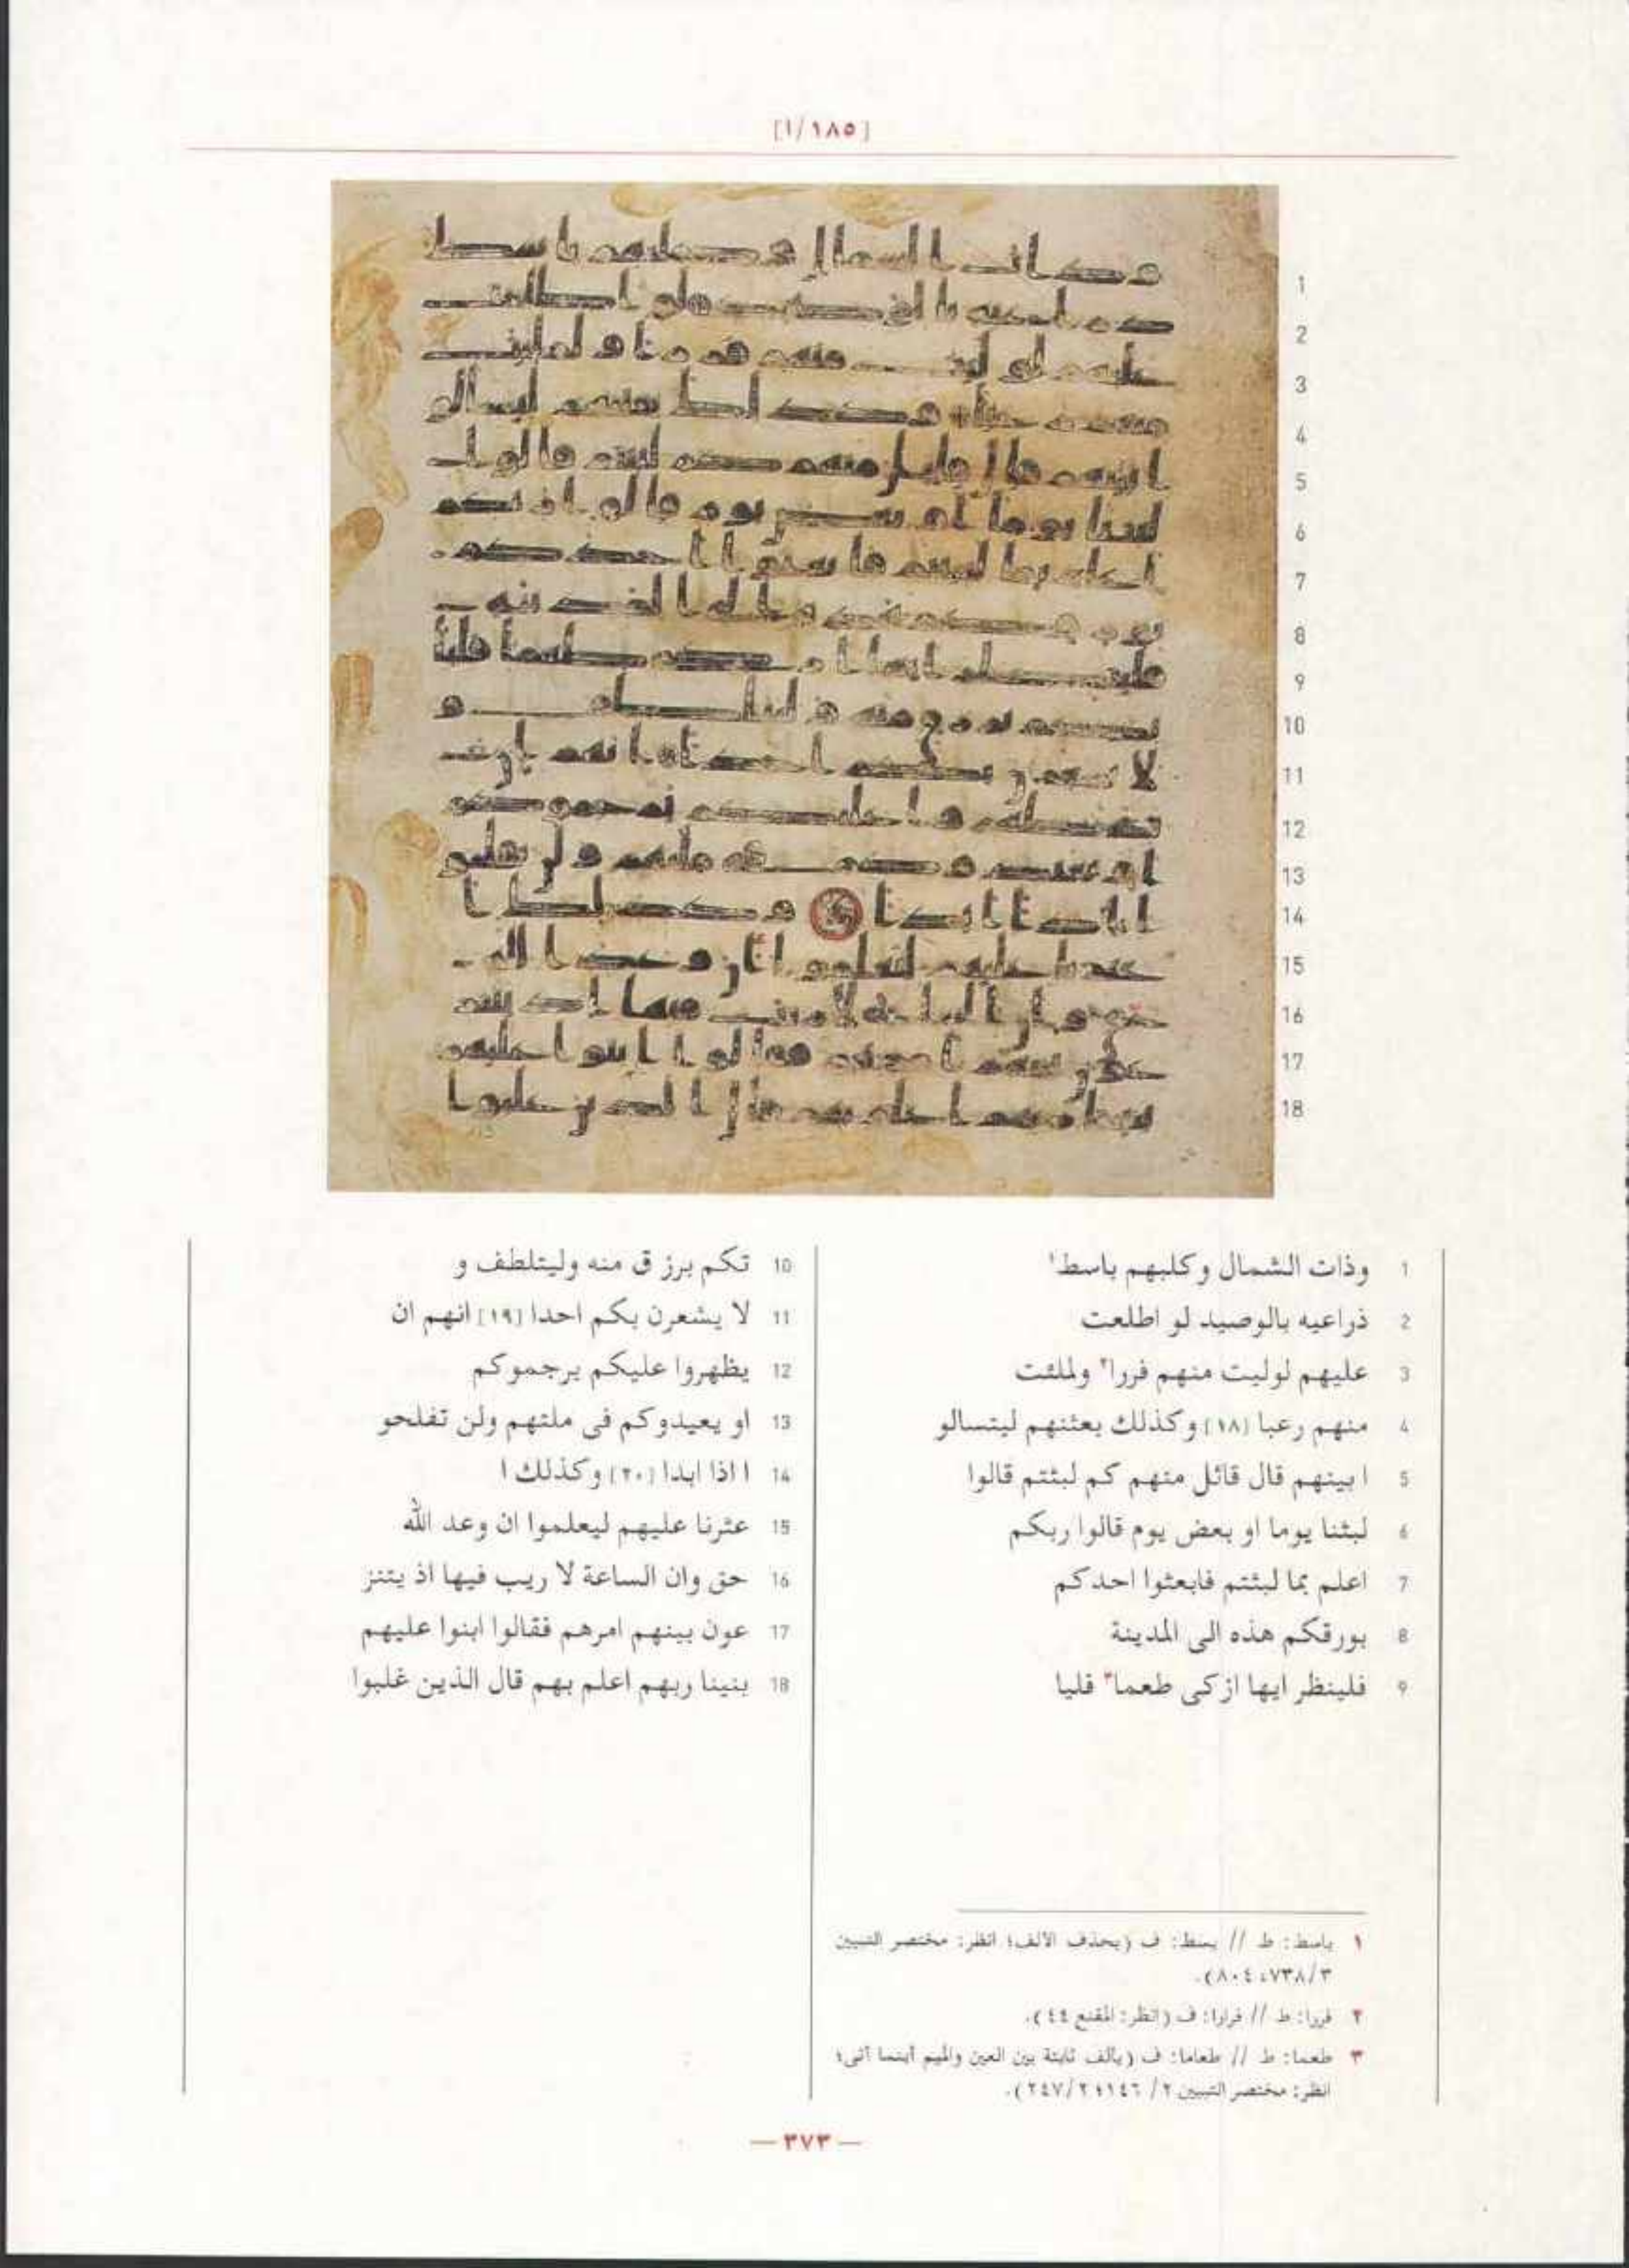 [١٨٥/ا]
1 وذات الشمال وكلبهم باسط١
2 ذراعيه بالوصيد لو اطلعت
3 عليهم لوليت منهم فررا٢ ولملئت
4 منهم رعبا [١٨] وكذلك بعثنهم ليتسالو
5 ا بينهم قال قائل منهم كم لبثتم قالوا
6 لبثنا يوما او بعض يوم قالوا ربكم
7 اعلم بما لبثتم فابعثوا احدكم
8 بورقكم هذه الى المدينة
9 فلينظر ايها ازكى طعما٣ قليا
10 تكم برز ق منه وليتلطف و
11 لا يشعرن بكم احدا [١٩] انهم ان
12 يظهروا عليكم يرجموكم
13 او يعيدوكم فى ملتهم ولن تفلحو
14 ا اذا ابدا [٢٠] وكذلك ا
15 عثرنا عليهم ليعلموا ان وعد الله
16 حق وان الساعة لا ريب فيها اذ يتنز
17 عون بينهم امرهم فقالوا ابنوا عليهم
18 بنينا ربهم اعلم بهم قال الذين غلبوا
١ باسط: ط // بسط: ف (بحذف الالف؛ انظر: مختصر التبيين
٣/٧٣٨، ٨٠٤).
٢ فررا: ط // فرارا: ف (انظر: المقنع ٤٤).
٣ طعما: ط // طعاما: ف (بألف ثابتة بين العين والميم أينما أتى؛
انظر: مختصر التبيين ٢/ ١٤٦؛ ٢/٢٤٧).
— ٣٧٣ —